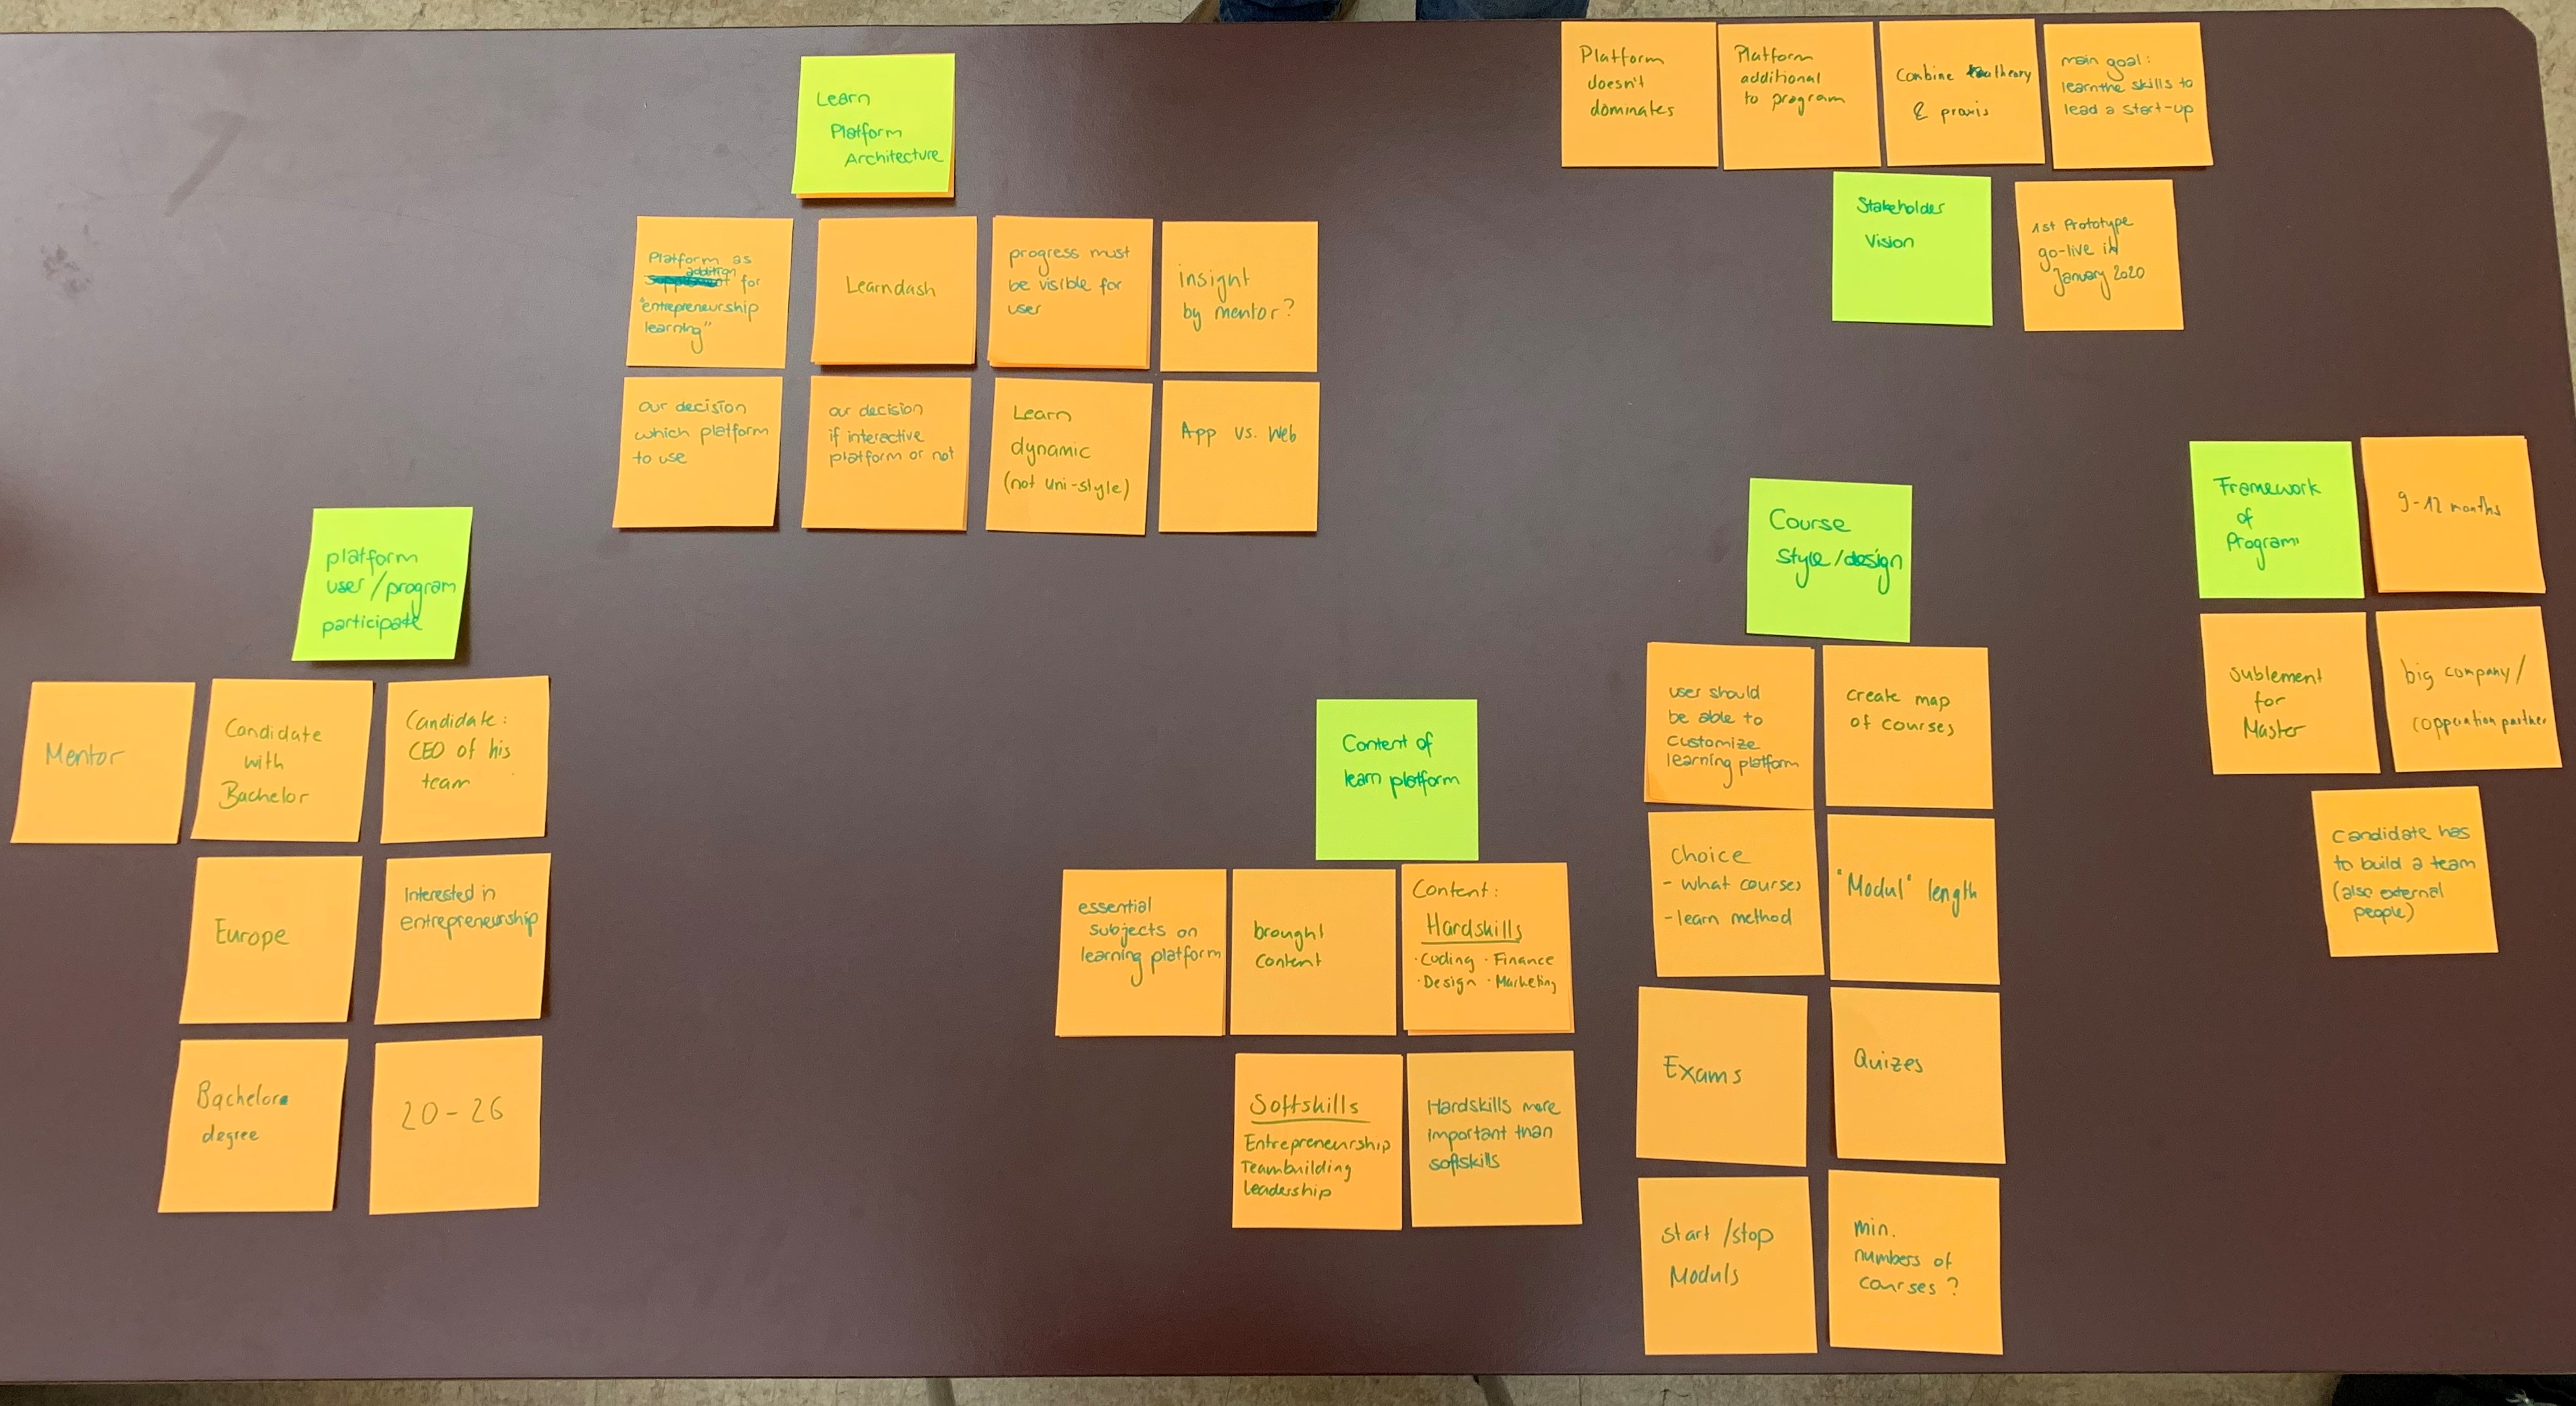 Learn
Platform
Architecture
Platform as
addition
for
"entrepreneurship
learning"
Learndash
progress must
be visible for
user
insight
by mentor?
our decision
which platform
to use
our decision
if interactive
platform or not
Learn
dynamic
(not uni-style)
App vs. Web
Platform
doesn't
dominates
Platform
additional
to program
Combine theory
& praxis
main goal:
learn the skills to
lead a start-up
Stakeholder
Vision
1st Prototype
go-live in
January 2020
platform
user/program
participate
Mentor
Candidate
with
Bachelor
Candidate:
CEO of his
team
Europe
Interested in
entrepreneurship
Bachelor
degree
20-26
Content of
learn platform
essential
subjects on
learning platform
brought
content
Content:
Hardskills
·Coding ·Finance
·Design ·Marketing
Softskills
Entrepreneurship
Teambuilding
Leadership
Hardskills more
important than
softskills
Course
style/design
user should
be able to
customize
learning platform
create map
of courses
Choice
- what courses
- learn method
"Modul" length
Exams
Quizes
Start/stop
Moduls
min.
numbers of
courses?
Framework
of
Program
9-12 months
sublement
for
Master
big company/
copperation partner
Candidate has
to build a team
(also external
people)